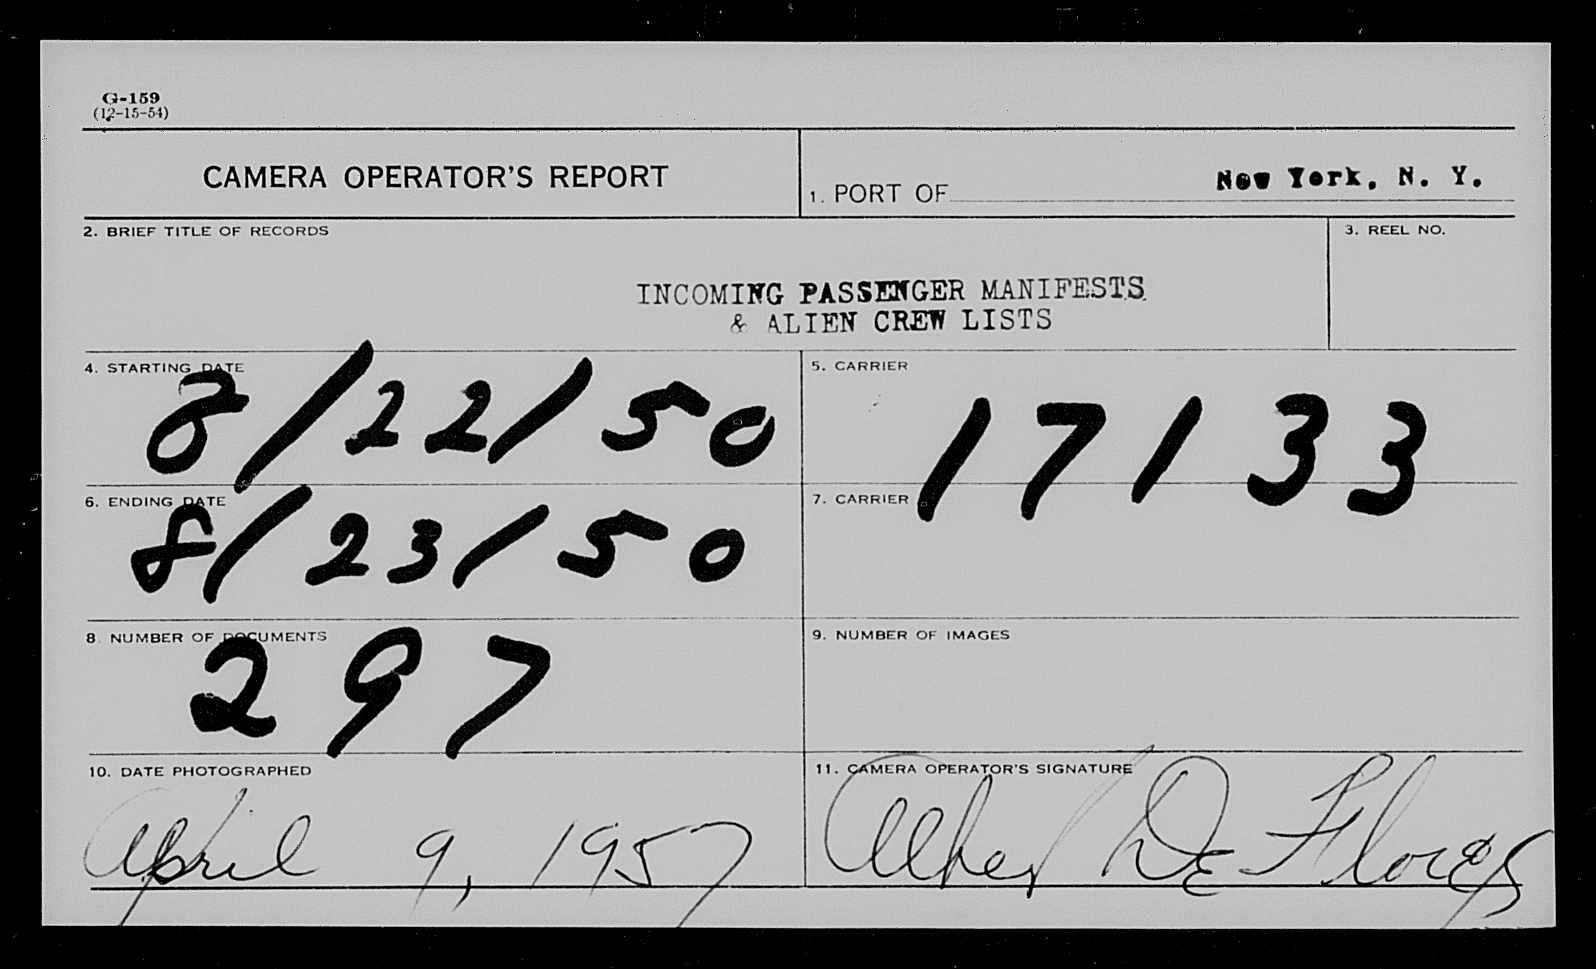 G-159
(12-15-54)
CAMERA OPERATOR'S REPORT
1. PORT OF New York, N. Y.
2. BRIEF TITLE OF RECORDS
3. REEL NO.
INCOMING PASSENGER MANIFESTS
& ALIEN CREW LISTS
4. STARTING DATE
8/22/50
5. CARRIER
17133
6. ENDING DATE
8/23/50
7. CARRIER
8. NUMBER OF DOCUMENTS
297
9. NUMBER OF IMAGES
10. DATE PHOTOGRAPHED
April 9, 1957
11. CAMERA OPERATOR'S SIGNATURE
De